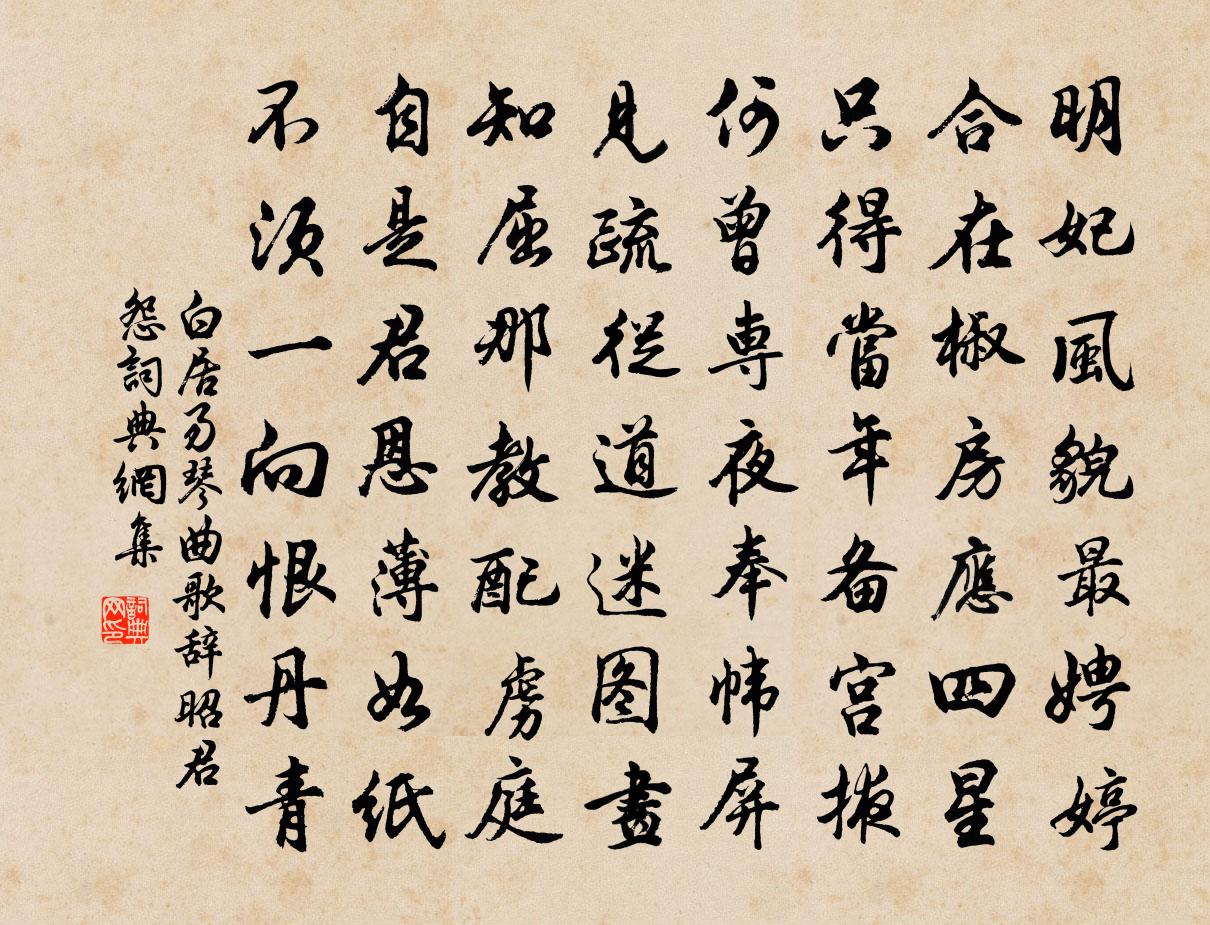 明妃風貌最娉婷
合在椒房應四星
只得當年备宫掖
何曾專夜奉帏屏
見疏從道迷图畫
知屈那教配虏庭
自是君恩薄如紙
不須一向恨丹青
白居易琴曲歌辞昭君
怨詞典網集
詞典
网印